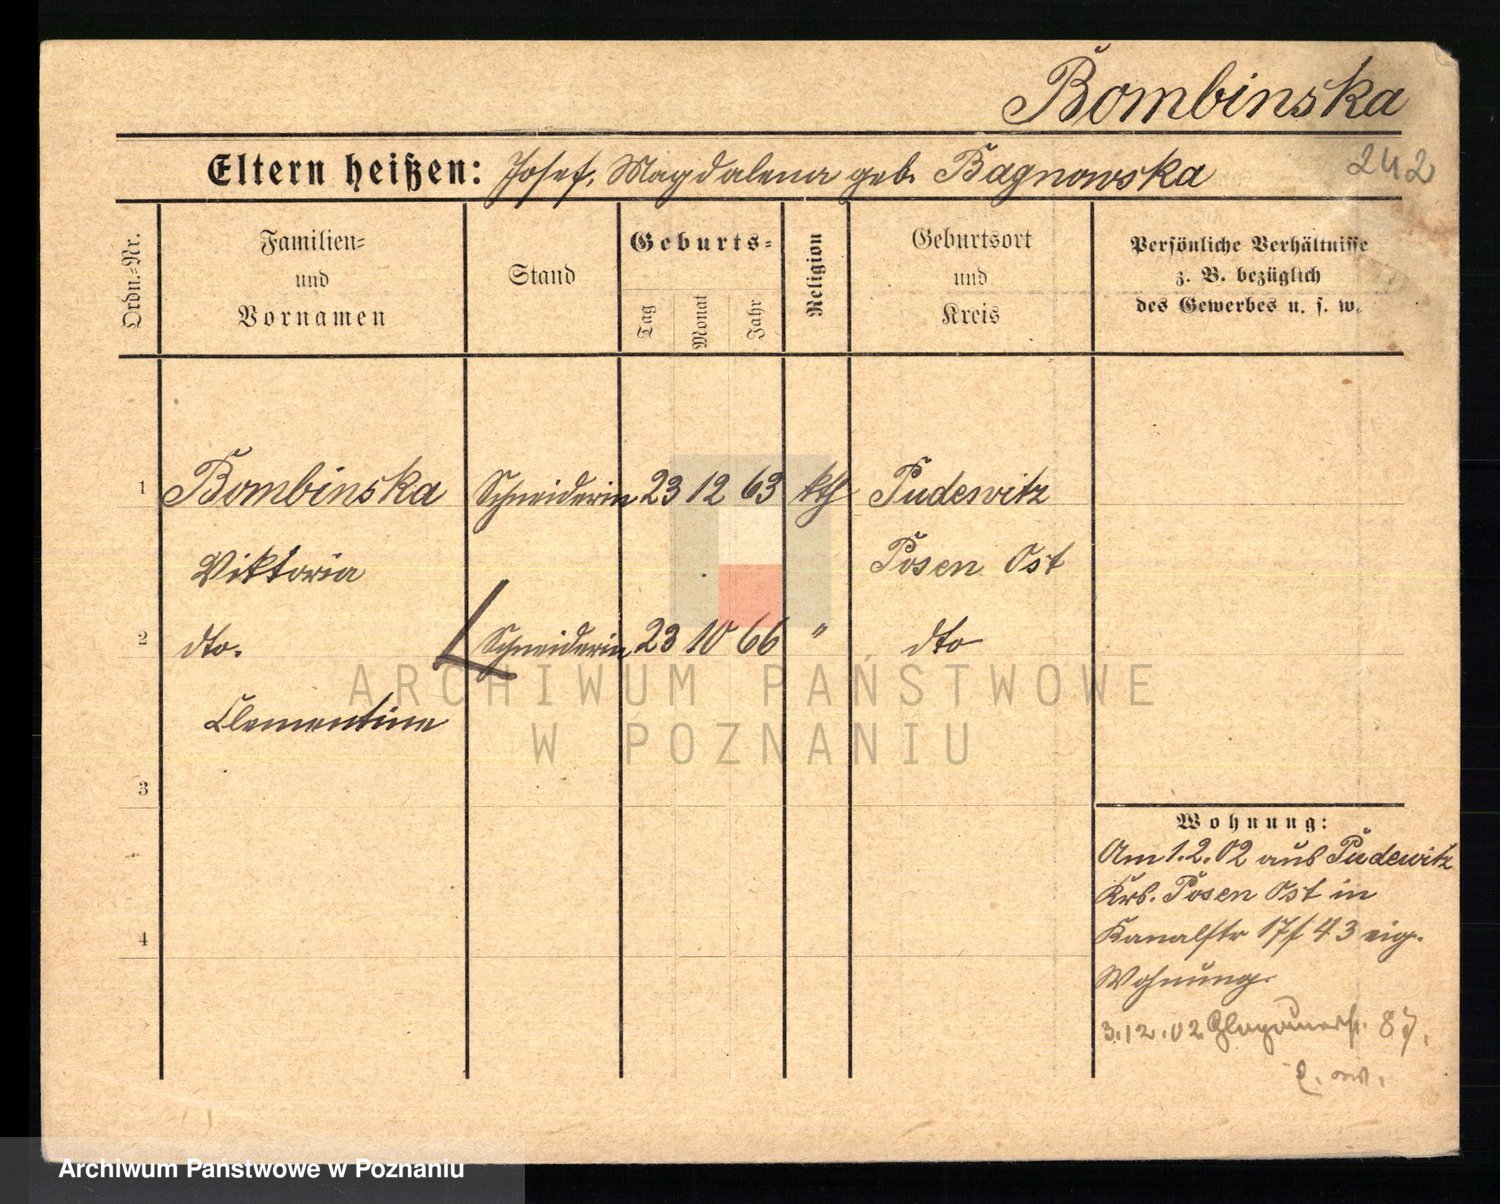 Bombinska
242
Eltern heißen: Josef, Magdalena geb. Bagnowska
Ordn.-Nr.
Familien-
und
Vornamen
Stand
Geburts-
Tag
Monat
Jahr
Religion
Geburtsort
und
Kreis
Persönliche Verhältnisse
z. B. bezüglich
des Gewerbes u. s. w.
1 Bombinska Schneiderin 23 12 63 kth Pudewitz
Viktoria Posen Ost
2 dto. Schneiderin 23 10 66 " dto
Clementine
3
4
Wohnung:
Am 1.2.02 aus Pudewitz
Krs. Posen Ost in
Kanalstr 17/43 eig.
Wohnung
3.12.02 Glogauerstr. 87.
ARCHIWUM PAŃSTWOWE
W POZNANIU
Archiwum Państwowe w Poznaniu